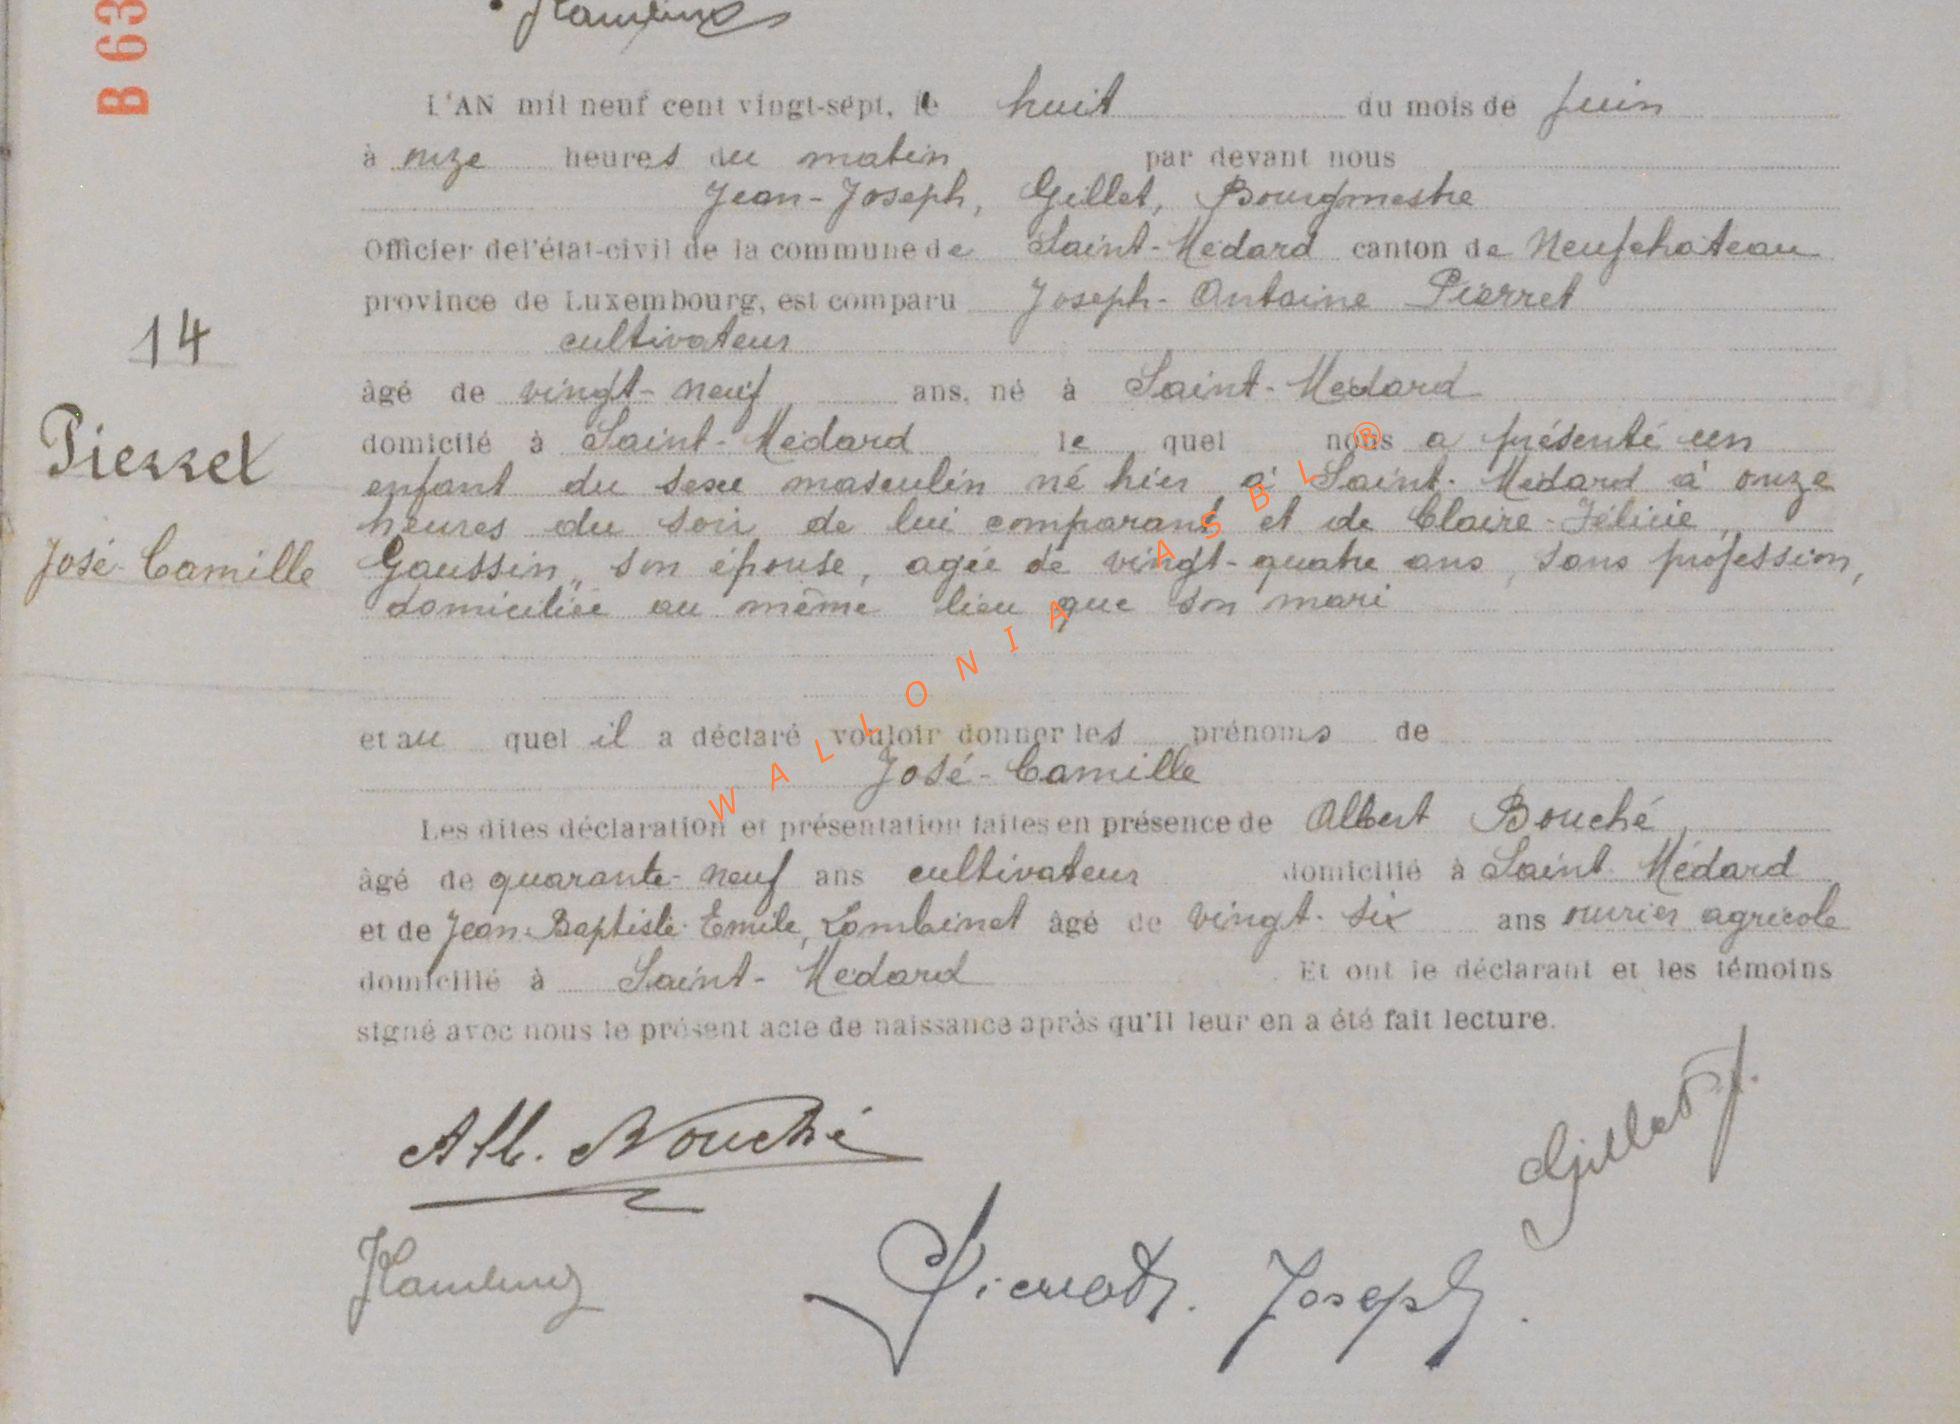 B 63
L'AN mil neuf cent vingt-sept, le huit du mois de Juin
à onze heures du matin par devant nous
Jean-Joseph, Gillet, Bourgmestre
Officier de l'état-civil de la commune de Saint-Médard canton de Neufchateau
province de Luxembourg, est comparu Joseph-Antoine Pierret
cultivateur
14
âgé de vingt-neuf ans, né à Saint-Médard
Pierret
domicilié à Saint-Médard le quel nous a présenté un
enfant du sexe masculin né hier à Saint-Médard à onze
heures du soir de lui comparant et de Claire-Félicie,
José-Camille
Gaussin,, son épouse, agée de vingt-quatre ans, sans profession,
domiciliée au même lieu que son mari
et au quel il a déclaré vouloir donner les prénoms de
José-Camille
Les dites déclaration et présentation faites en présence de Albert Bouché,
âgé de quarante-neuf ans cultivateur domicilié à Saint Médard
et de Jean-Baptiste-Emile, Lambinet âgé de vingt-six ans ouvrier agricole
domicilié à Saint-Médard Et ont le déclarant et les témoins
signé avec nous le présent acte de naissance après qu'il leur en a été fait lecture.
Alb. Bouché
Gillet J.
Pierret Joseph.
WALLONIA ASBL ®